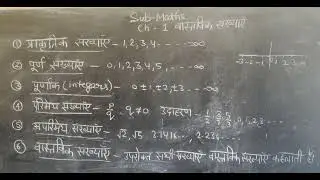 Sub-Maths
Ch-1 वास्तविक संख्याएँ
① प्राकृतिक संख्याएँ - 1,2,3,4 - - - - ∞
② पूर्ण संख्याएँ - 0,1,2,3,4,5, - - - - ∞
③ पूर्णांक (integers) - 0 ±1, ±2, ±3 - - - ∞
④ परिमेय संख्याएँ - p/q, q≠0 उदाहरण -
⑤ अपरिमेय संख्याएँ - √2, √5 3.1416... 2.236...
⑥ वास्तविक संख्याएँ - उपरोक्त सभी संख्याएं वास्तविक संख्याएँ कहलाती हैं।
-3 -2 -1 0 1 2 3